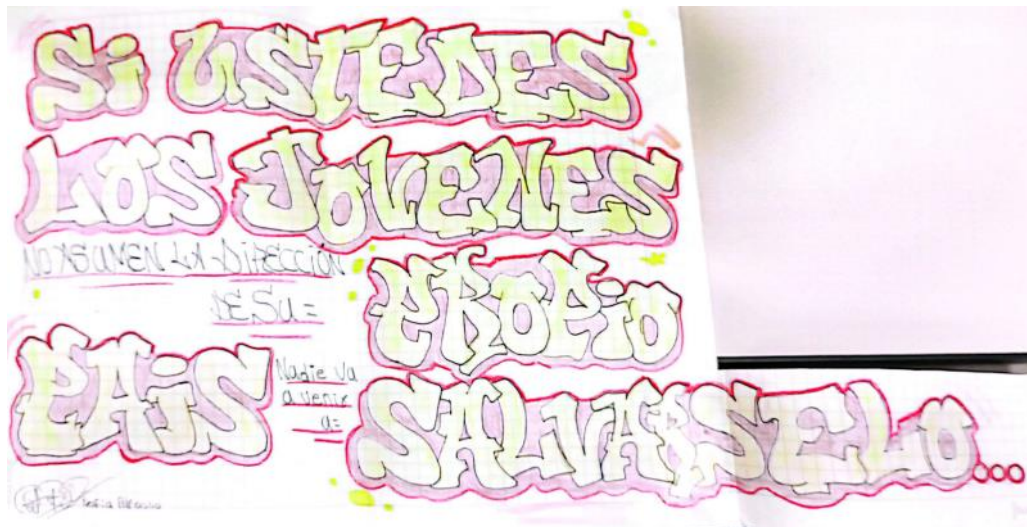 Si USTEDES
LOS JOVENES
NO ASUMEN LA DIRECCIÓN
DE SU =
PROPiO
PAiS
Nadie va
a venir
a =
SALVARSELO...